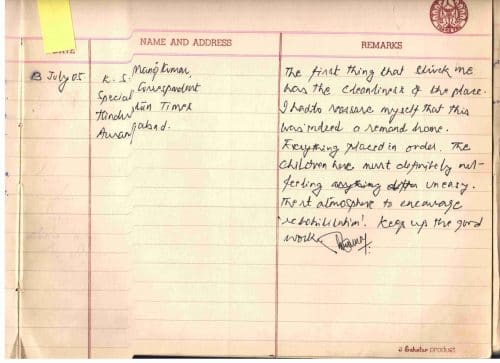 DATE
NAME AND ADDRESS
REMARKS
13 July 05.
K. S. Manojkumar,
Special Correspondent
Hindustan Times
Aurangabad.
The first thing that struck me
was the cleanliness of the place.
I had to reassure myself that this
was indeed a remand home.
Everything placed in order. The
children here must definitely not
feeling uneasy.
atmosphere to encourage
'rehabilitation'. Keep up the good
work.
product